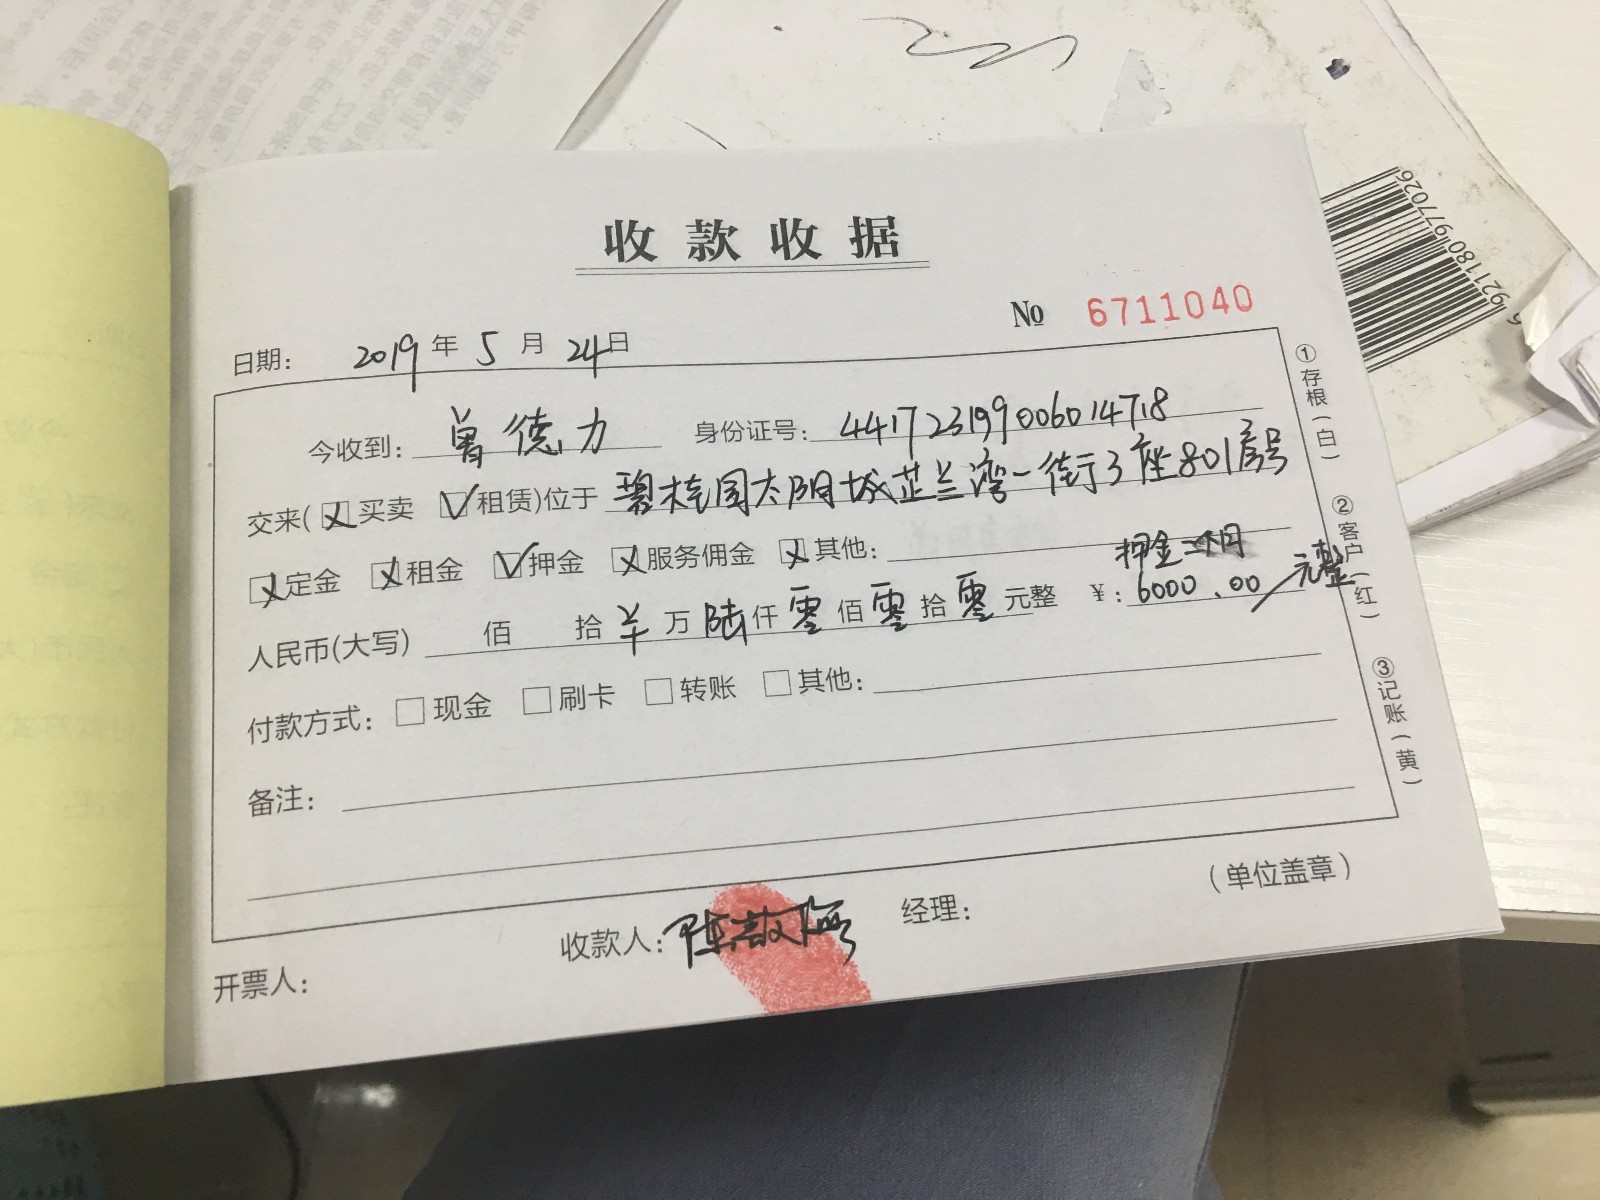 收款收据
№ 6711040
日期: 2019年5月24日
今收到: 曾德力 身份证号: 441723199006014718
交来(☒买卖 ☑租赁)位于 碧桂园太阳城芷兰湾一街3座801房号
☒定金 ☒租金 ☑押金 ☒服务佣金 ☒其他: 押金二个月
人民币(大写) 佰 拾 羊 万 陆 仟 零 佰 零 拾 零 元整 ¥: 6000.00/元整
付款方式: □现金 □刷卡 □转账 □其他:
备注:
(单位盖章)
开票人: 收款人: 经理:
①存根(白)
②客户(红)
③记账(黄)
6 921180 977026